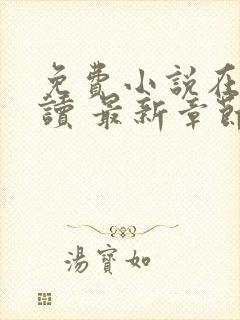 免費小說在
讀 最新章節
湯寶如